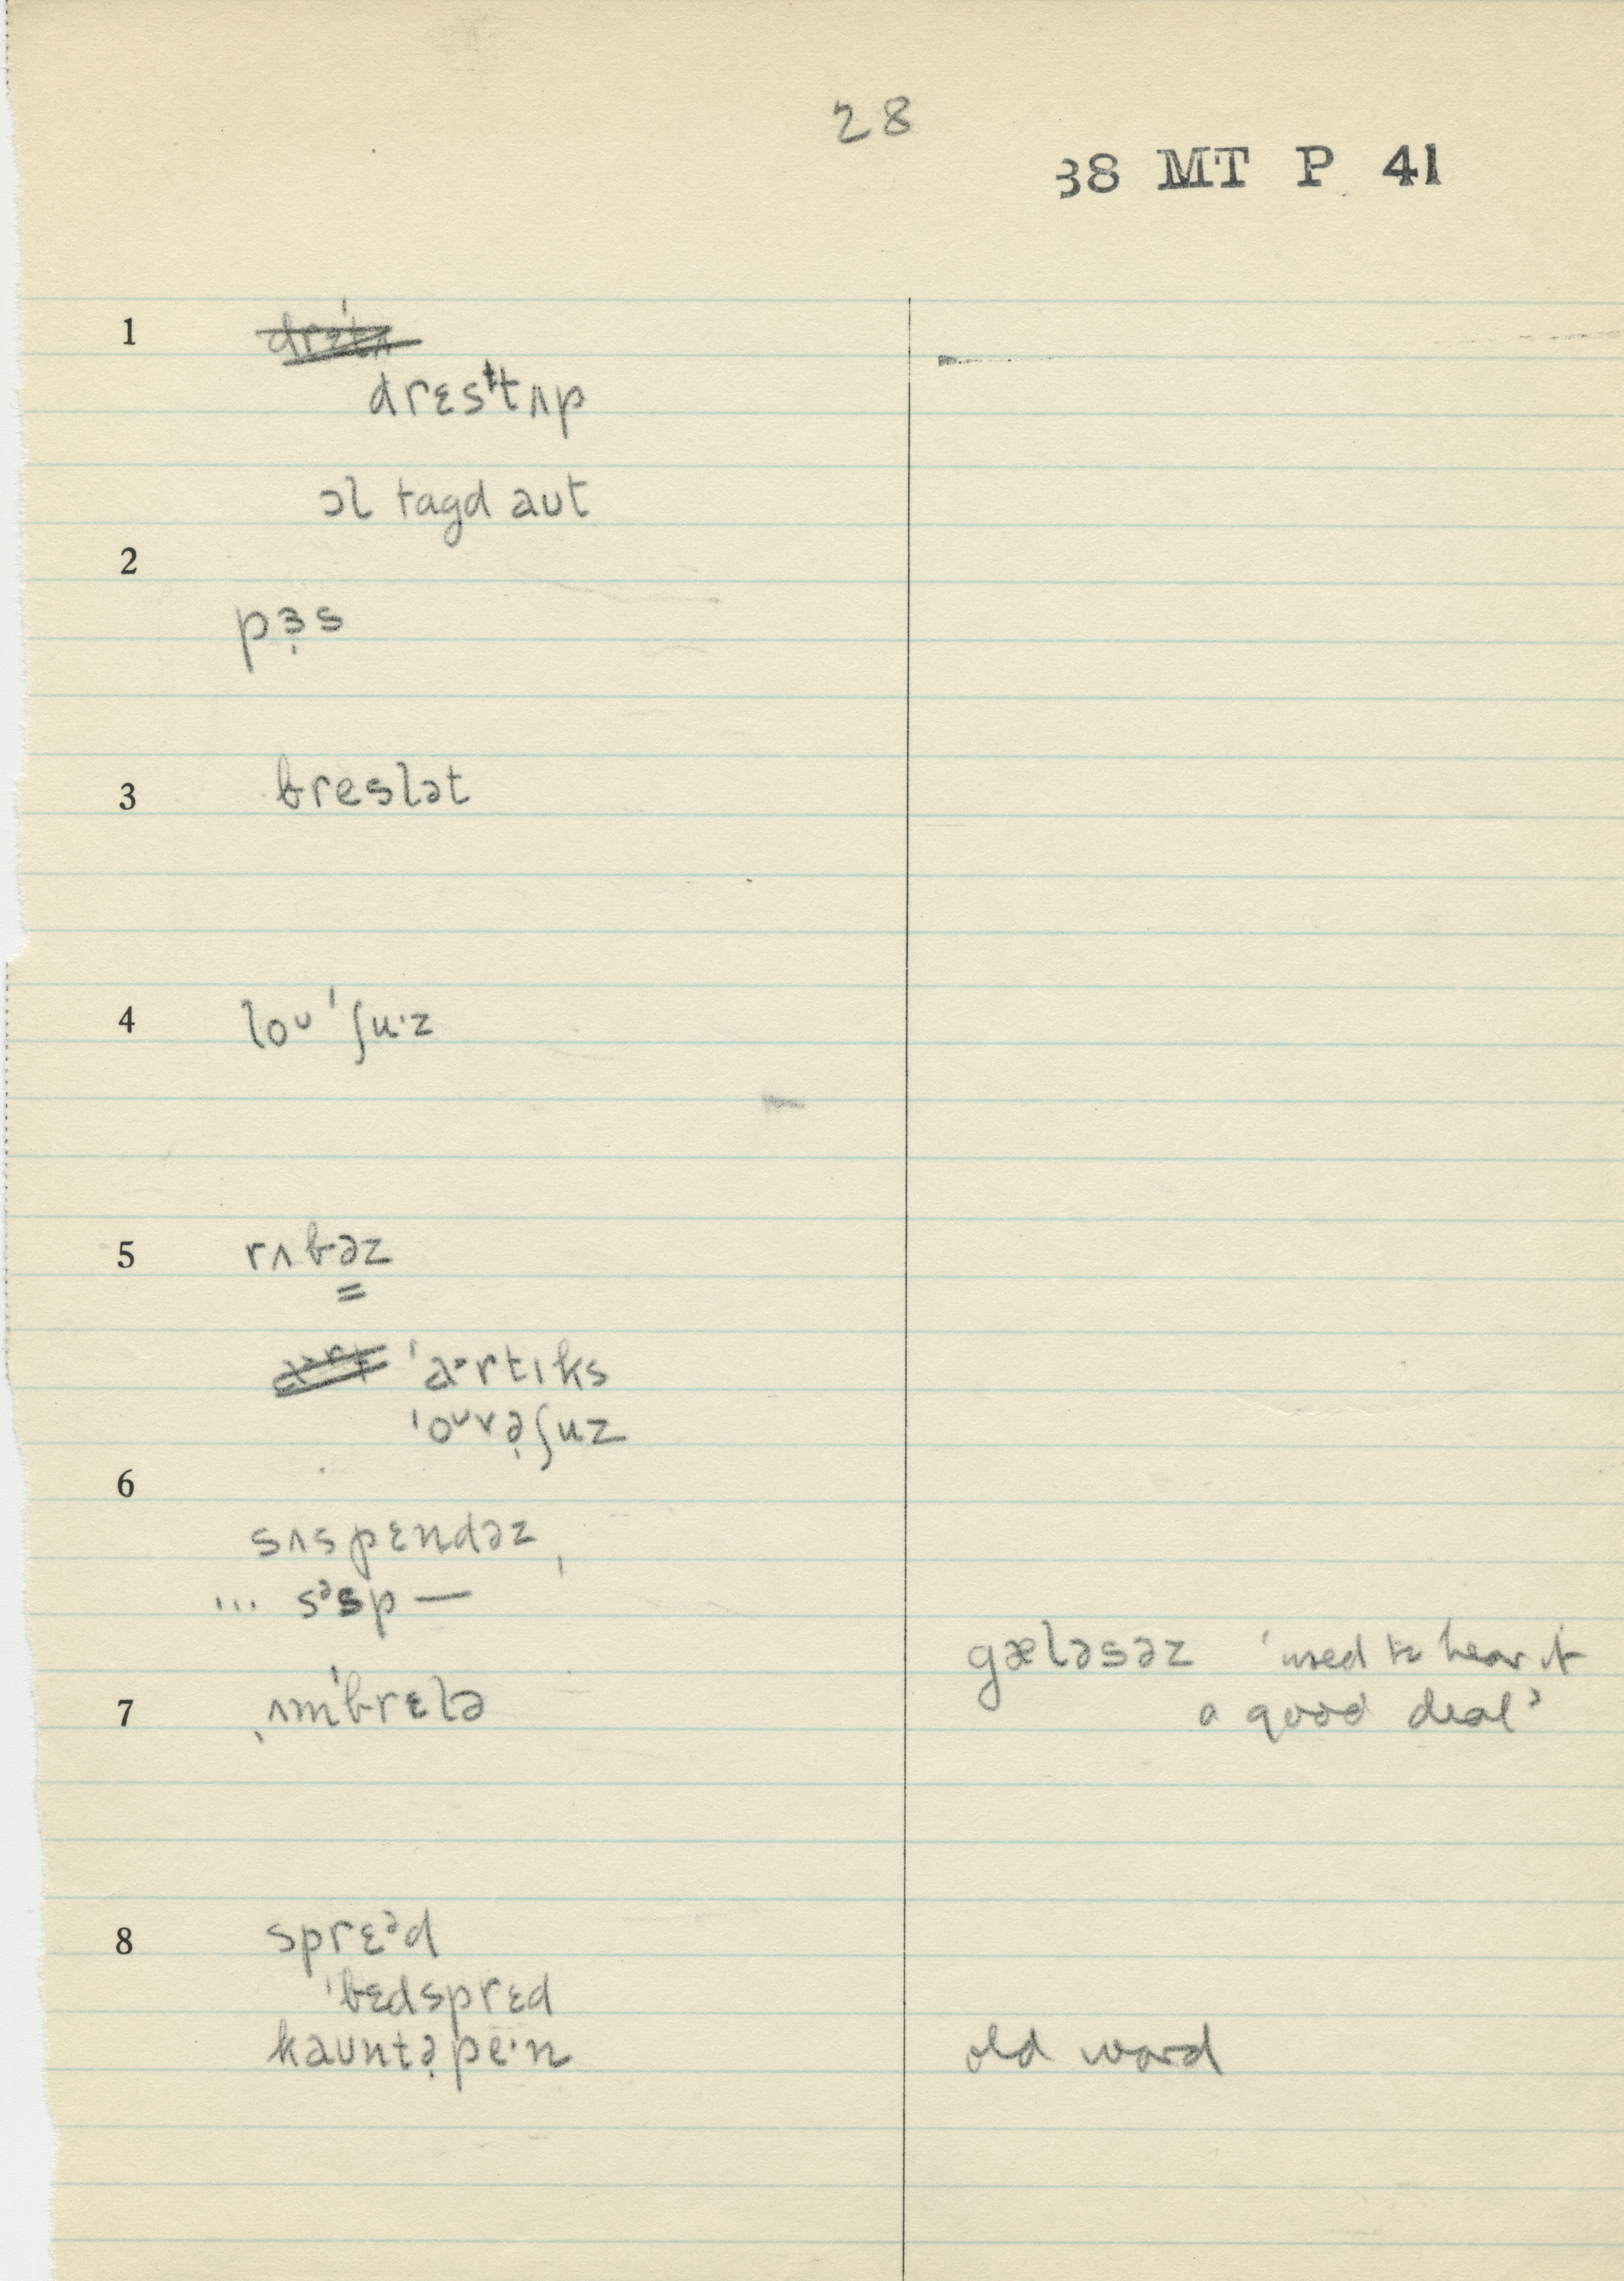 28
38 MT P 41
1
drɛsᵗtʌp
ɔl tagd aut
2
pɜ̣s
3
breslət
4
loᴜ ˈʃu·z
5
rʌbəz
ˈaᵊrtɪks
ˈoᴜvə̣ʃuz
6
sʌspɛndəz,
... sᵊsp —
gæləsəz 'used to hear it
7 ˌʌmˈbrɛlə a good deal'
8 sprɛᵊd
ˈbɛdsprɛd
kaʊntə̣pe·n old word